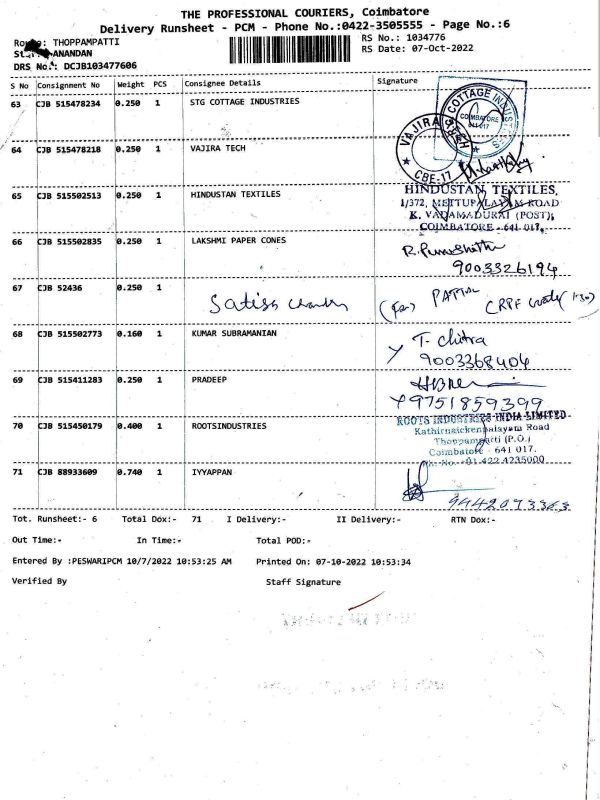 THE PROFESSIONAL COURIERS, Coimbatore
Delivery Runsheet - PCM - Phone No.:0422-3505555 - Page No.:6
THOPPAMPATTI
RS No.: 1034776
ANANDAN
RS Date: 07-Oct-2022
DRS No.: DCJB103477606
S No Consignment No Weight PCS Consignee Details Signature
63 CJB 515478234 0.250 1 STG COTTAGE INDUSTRIES
COTTAGE
COIMBATORE
641 017
64 CJB 515478218 0.250 1 VAJIRA TECH
VAJIRA
CBE-17
65 CJB 515502513 0.250 1 HINDUSTAN TEXTILES
HINDUSTAN TEXTILES,
1/372, METTUPALAYAM ROAD
K. VADAMADURAI (POST),
COIMBATORE - 641 017.
66 CJB 515502835 0.250 1 LAKSHMI PAPER CONES
9003326194
67 CJB 52436 0.250 1
68 CJB 515502773 0.160 1 KUMAR SUBRAMANIAN
T. Chitra
9003368404
69 CJB 515411283 0.250 1 PRADEEP
9751859399
70 CJB 515450179 0.400 1 ROOTSINDUSTRIES
ROOTS INDUSTRIES INDIA LIMITED
Kathirnaickenpalayam Road
Thoppampatti (P.O.)
Coimbatore - 641 017.
Ph: No. +91 422 4235000
71 CJB 88933609 0.740 1 IYYAPPAN
9442073363
Tot. Runsheet:- 6 Total Dox:- 71 I Delivery:- II Delivery:- RTN Dox:-
Out Time:- In Time:- Total POD:-
Entered By :PESWARIPCM 10/7/2022 10:53:25 AM Printed On: 07-10-2022 10:53:34
Verified By Staff Signature